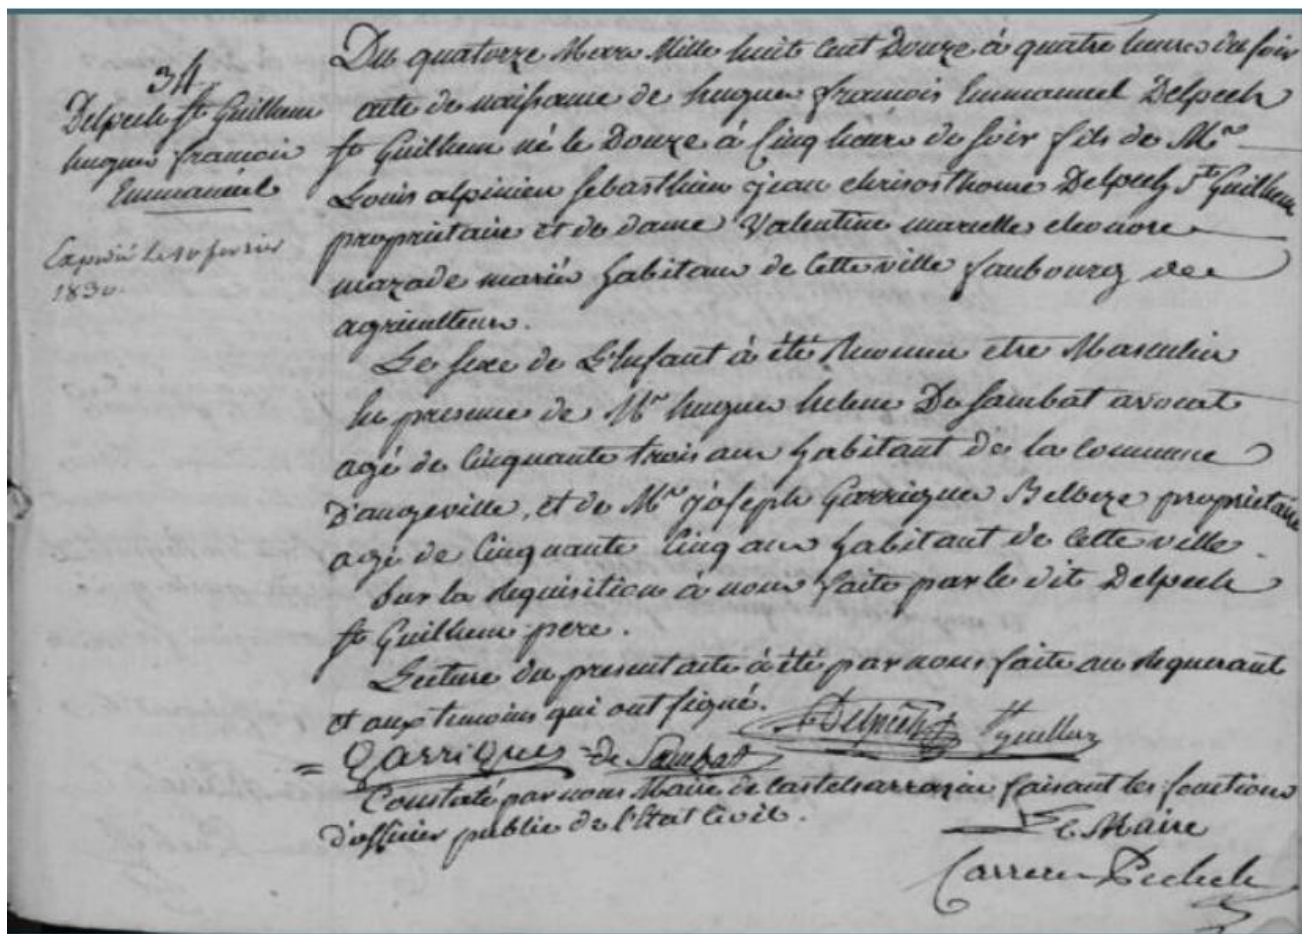 34
Delpech St Guilhem
hugues francois
Emmanuel
Expedié le 10 fevrier
1830.
Du quatorze Mars Mille huit Cent Douze à quatre heures du soir
acte de naissance de hugues francois Emmanuel Delpech
St Guilhem né le Douze à Cinq heures du soir fils de Mr
Louis alpinien sebasthien jean chrisosthome Delpech St Guilhem
propriétaire et de dame Valentine marcelle eleonore
mazade mariés habitans de Cette ville faubourg de
agriculteurs.
Le sexe de L'Enfant à été Reconnu etre Masculin
En presence de Mr hugues helene De Sambat avocat
agé de Cinquante trois ans habitant de la commune
D'angeville, et de Mr joseph Garrigues Belbeze propriétaire
agé de Cinquante Cinq ans habitant de Cette ville
Sur la Requisition à nous faite par le dit Delpech
St Guilhem pere.
Lecture du present acte à été par nous faite au Requerant
et aux temoins qui ont signé. Delpech St guilhem
= Garrigues = de Sambat
Constaté par nous Maire de Castelsarrazin faisant les fonctions
d'officier public de l'Etat Civil.
Le Maire
Carrere